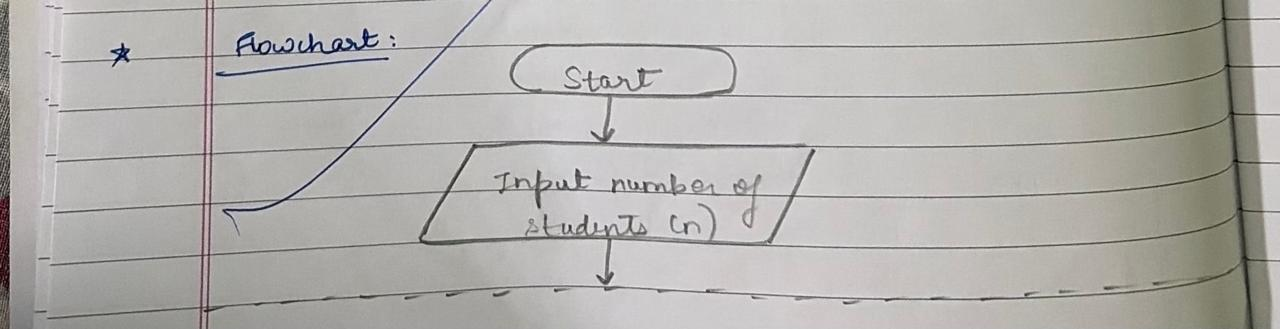 ★ Flowchart:
Start
Input number of
students (n)